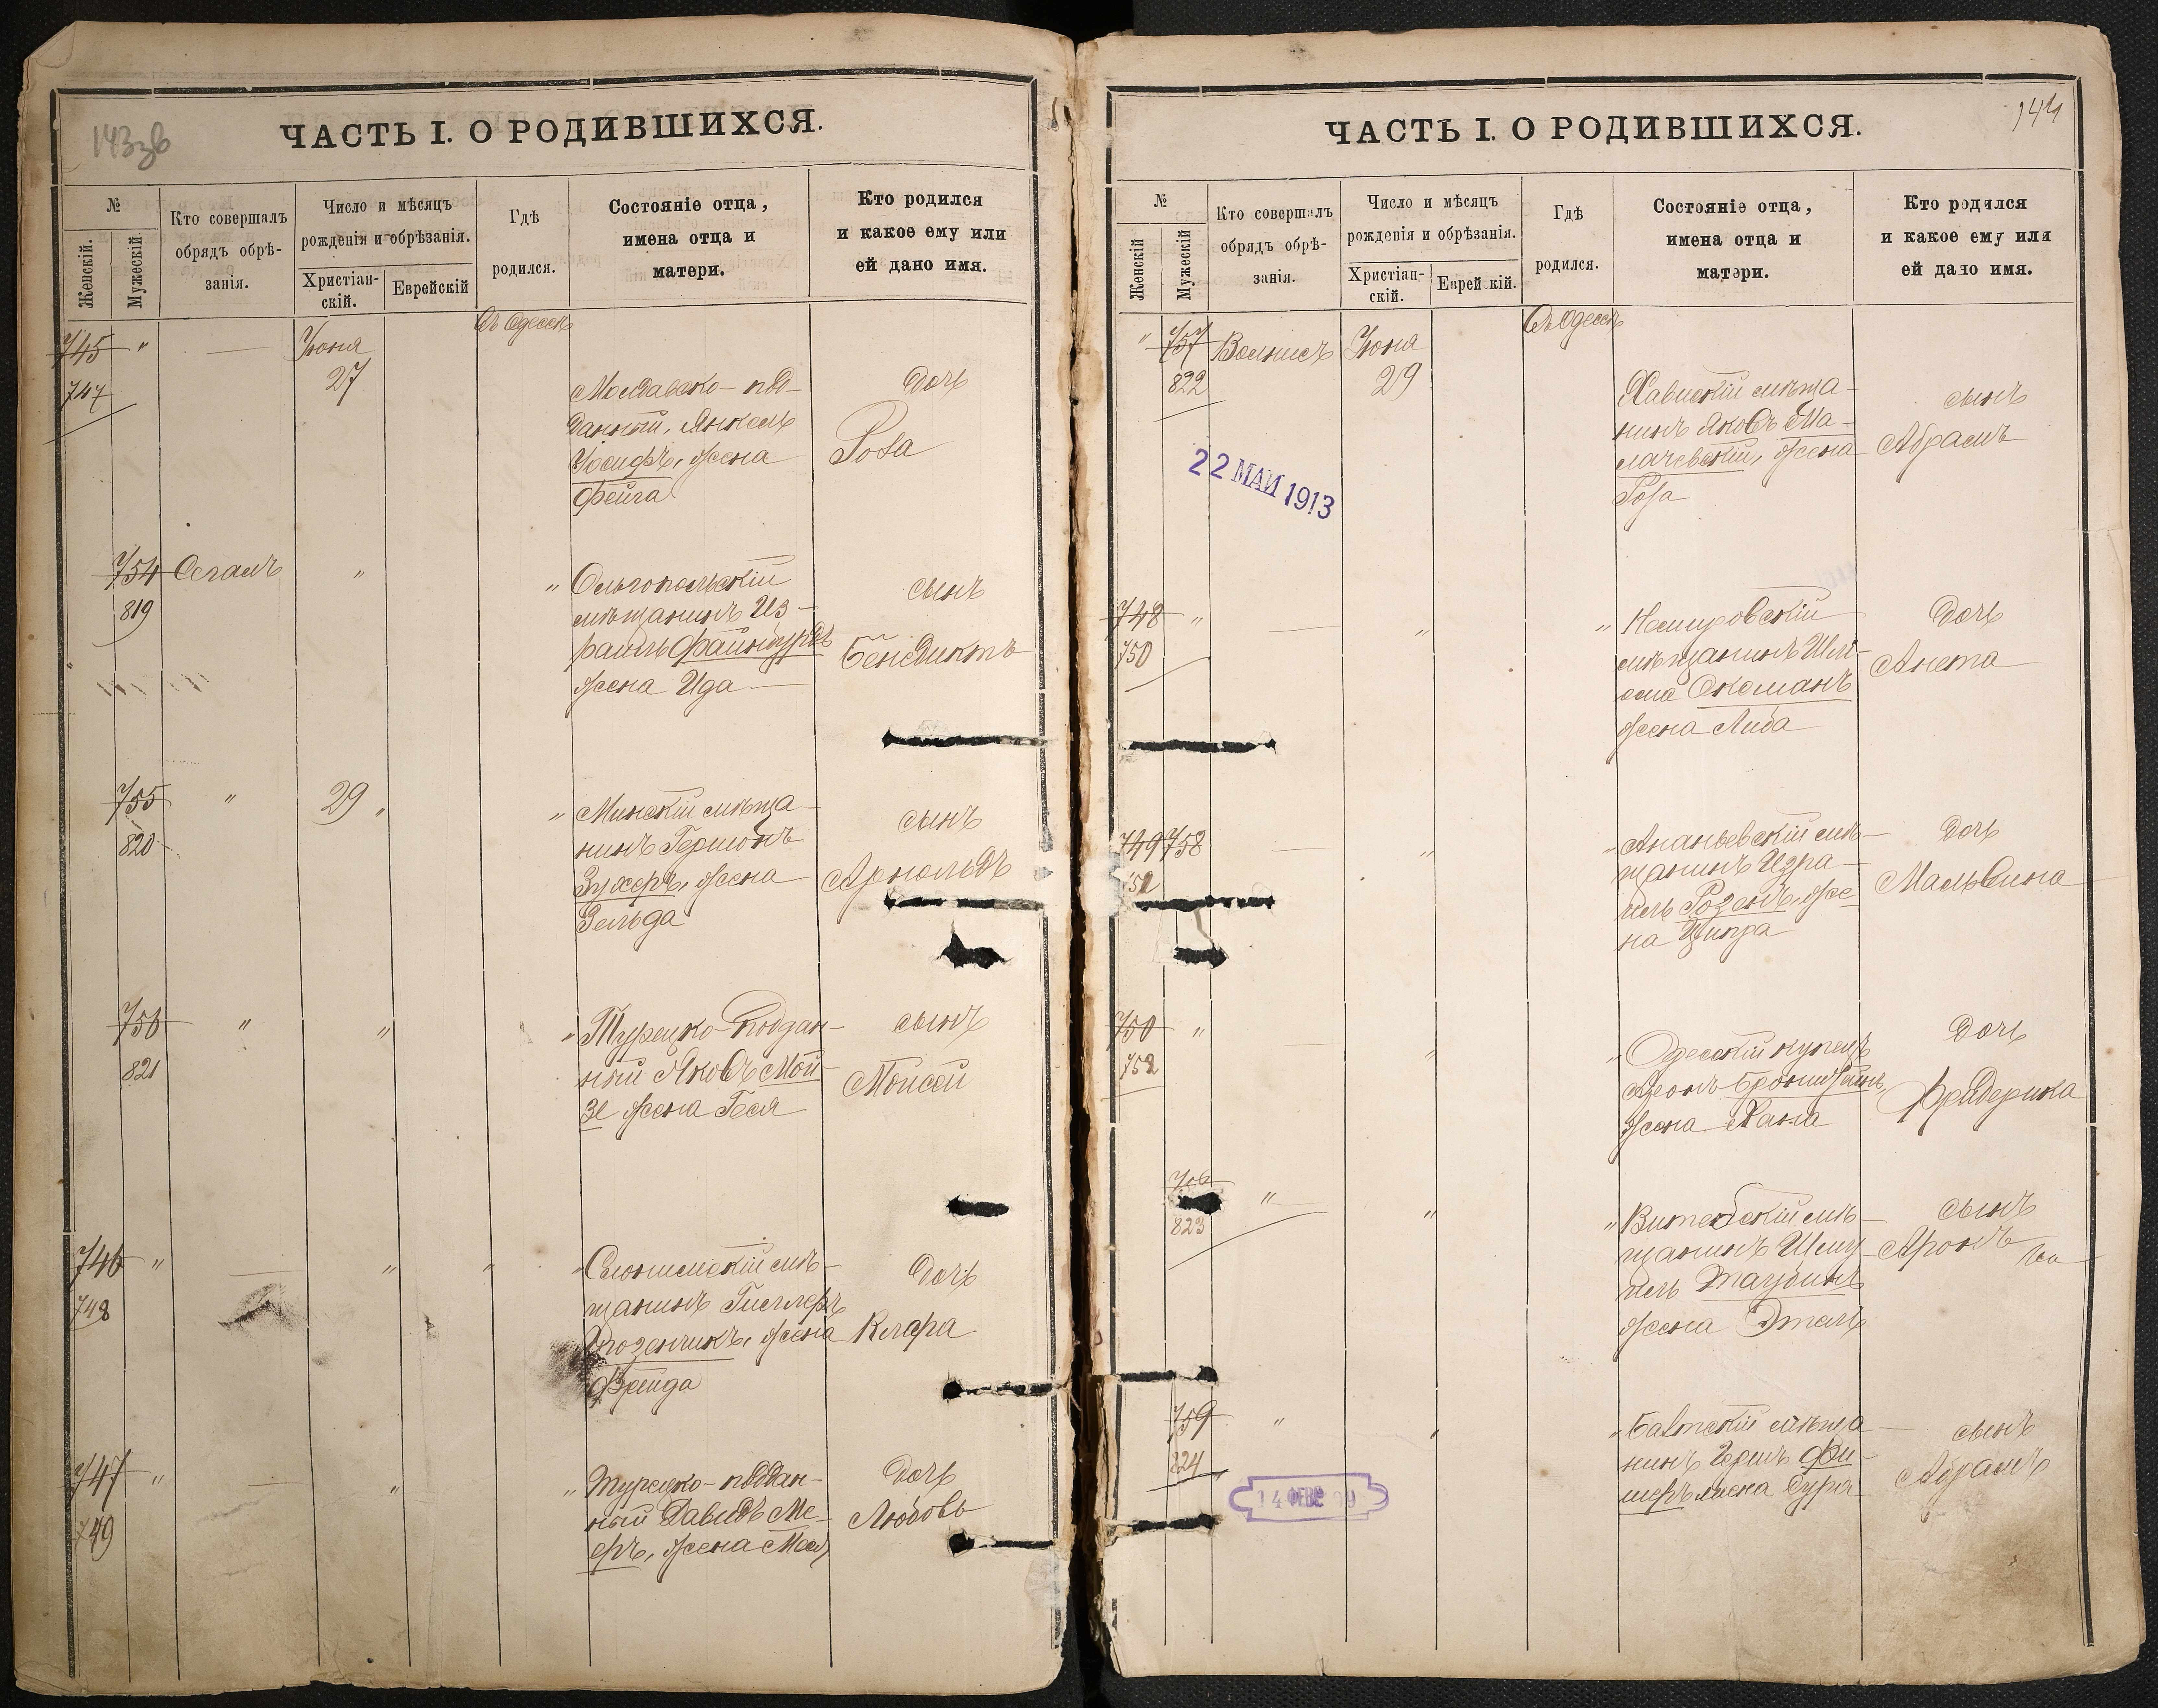 143зв
ЧАСТЬ I. О РОДИВШИХСЯ.
№
Женскій.
Мужескій
Кто совершалъ
обрядъ обрѣ-
занія.
Число и мѣсяцъ
рожденія и обрѣзанія.
Христіан-
скій.
Еврейскій
Гдѣ
родился.
Состояніе отца,
имена отца и
матери.
Кто родился
и какое ему или
ей дано имя.
745 "
747
Іюня
27
Въ Одессѣ
Молдавско-под-
данный, Янкель
Іосифъ, жена
Фейга
Дочь
Роза
754
819
Сегалъ
"
"
Ольгопольскій
мѣщанинъ Из-
раиль Файнбурдъ
жена Ида
сынъ
Бенедиктъ
755
820
"
29 "
"
Минскій мѣща-
нинъ Гершонъ
Зухеръ, жена
Зельда
сынъ
Арнольдъ
756
821
"
"
"
Турецко-поддан-
ный Яковъ Мой-
зе жена Геся
сынъ
Моисей
746 "
748
"
"
"
Слонимскій мѣ-
щанинъ Гиллеръ
жена
Фрейда
Дочь
Клара
747 "
749
"
"
Турецко-поддан-
ный Давидъ Ме-
еръ, жена
Дочь
Любовь
144
ЧАСТЬ I. О РОДИВШИХСЯ.
№
Женскій
Мужескій
Кто совершалъ
обрядъ обрѣ-
занія.
Число и мѣсяцъ
рожденія и обрѣзанія.
Христіан-
скій.
Еврей кій.
Гдѣ
родился.
Состояніе отца,
имена отца и
матери.
Кто родился
и какое ему или
ей дано имя.
" 757
822
Вольисъ
Іюня
29
Въ Одессѣ
мѣща-
нинъ Яковъ Ма-
лачевскій, жена
Роза
сынъ
Абрамъ
22 МАИ 1913
748 "
750
"
"
Немировскій
мѣщанинъ Шлі-
ома Окоманъ
жена Либа
Дочь
Анета
749 758
751
"
"
Ананьевскій мѣ-
щанинъ Изра-
иль Розенъ, же-
на Ципра
Дочь
Мальвина
750 "
752
"
"
Одесскій купецъ
Аронъ Бронштейнъ,
жена Хана
Дочь
Фридерика
823
"
"
"
Витебскій мѣ-
щанинъ Шму-
иль Таубинъ
жена Этель
сынъ
Аронъ
759
824
"
"
"
Балтскій мѣща-
нинъ Герш Фи-
шеръ жена Сура
сынъ
Абрамъ
14 ФЕВ 99